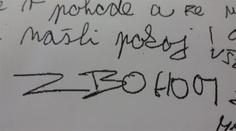 pohode a že
našli pokoj!
ZBOHOM